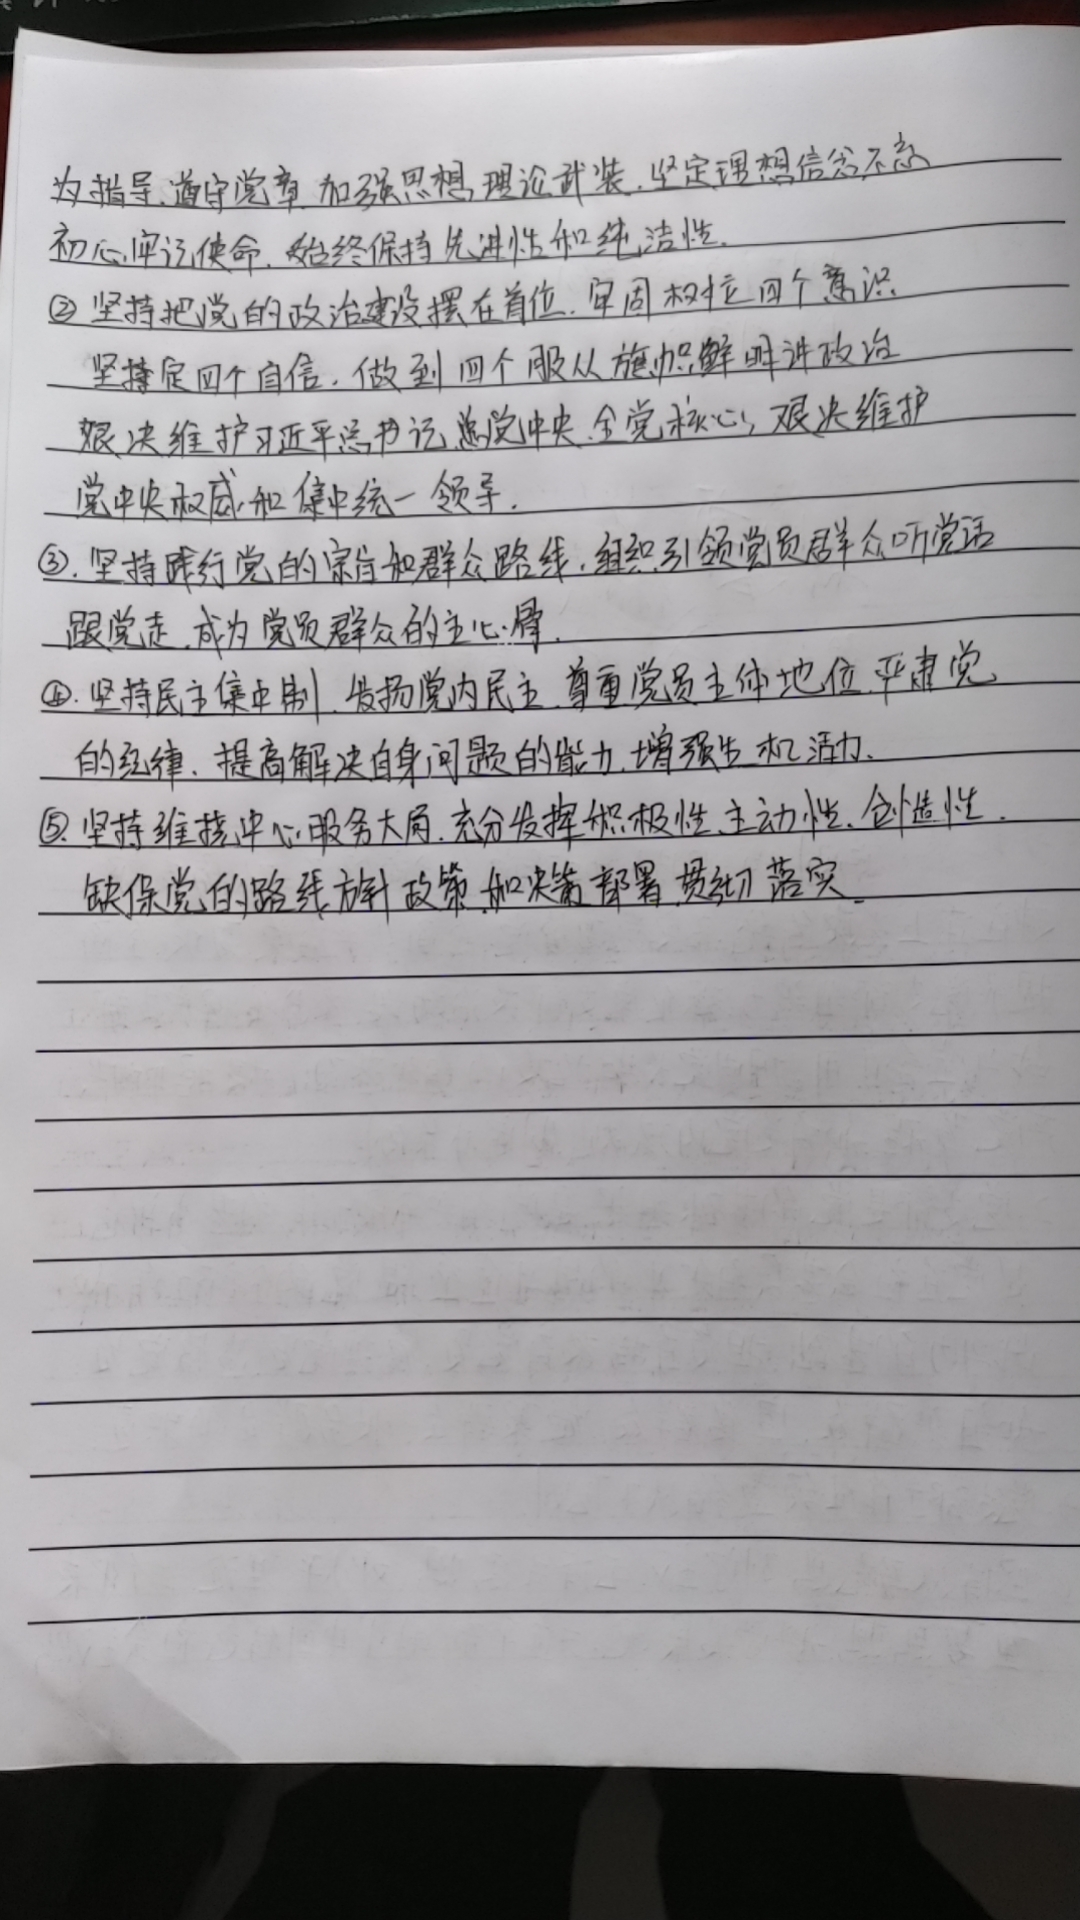 为指导、遵守党章、加强思想理论武装、坚定理想信念不忘
初心牢记使命、始终保持先进性和纯洁性.
② 坚持把党的政治建设摆在首位、牢固树立四个意识
坚持定四个自信、做到四个服从旗帜鲜明讲政治
艰决维护习近平总书记党中央、全党核心、艰决维护
党中央权威和集中统一领导.
③. 坚持践行党的宗旨和群众路线、组织引领党员群众听党话
跟党走、成为党员群众的主心骨.
④. 坚持民主集中制、发扬党内民主、尊重党员主体地位、严肃党
的纪律、提高解决自身问题的能力、增强生机活力、
⑤. 坚持维接中心服务大局、充分发挥积极性、主动性、创造性.
缺保党的路线方针政策和决策部署贯彻落实.